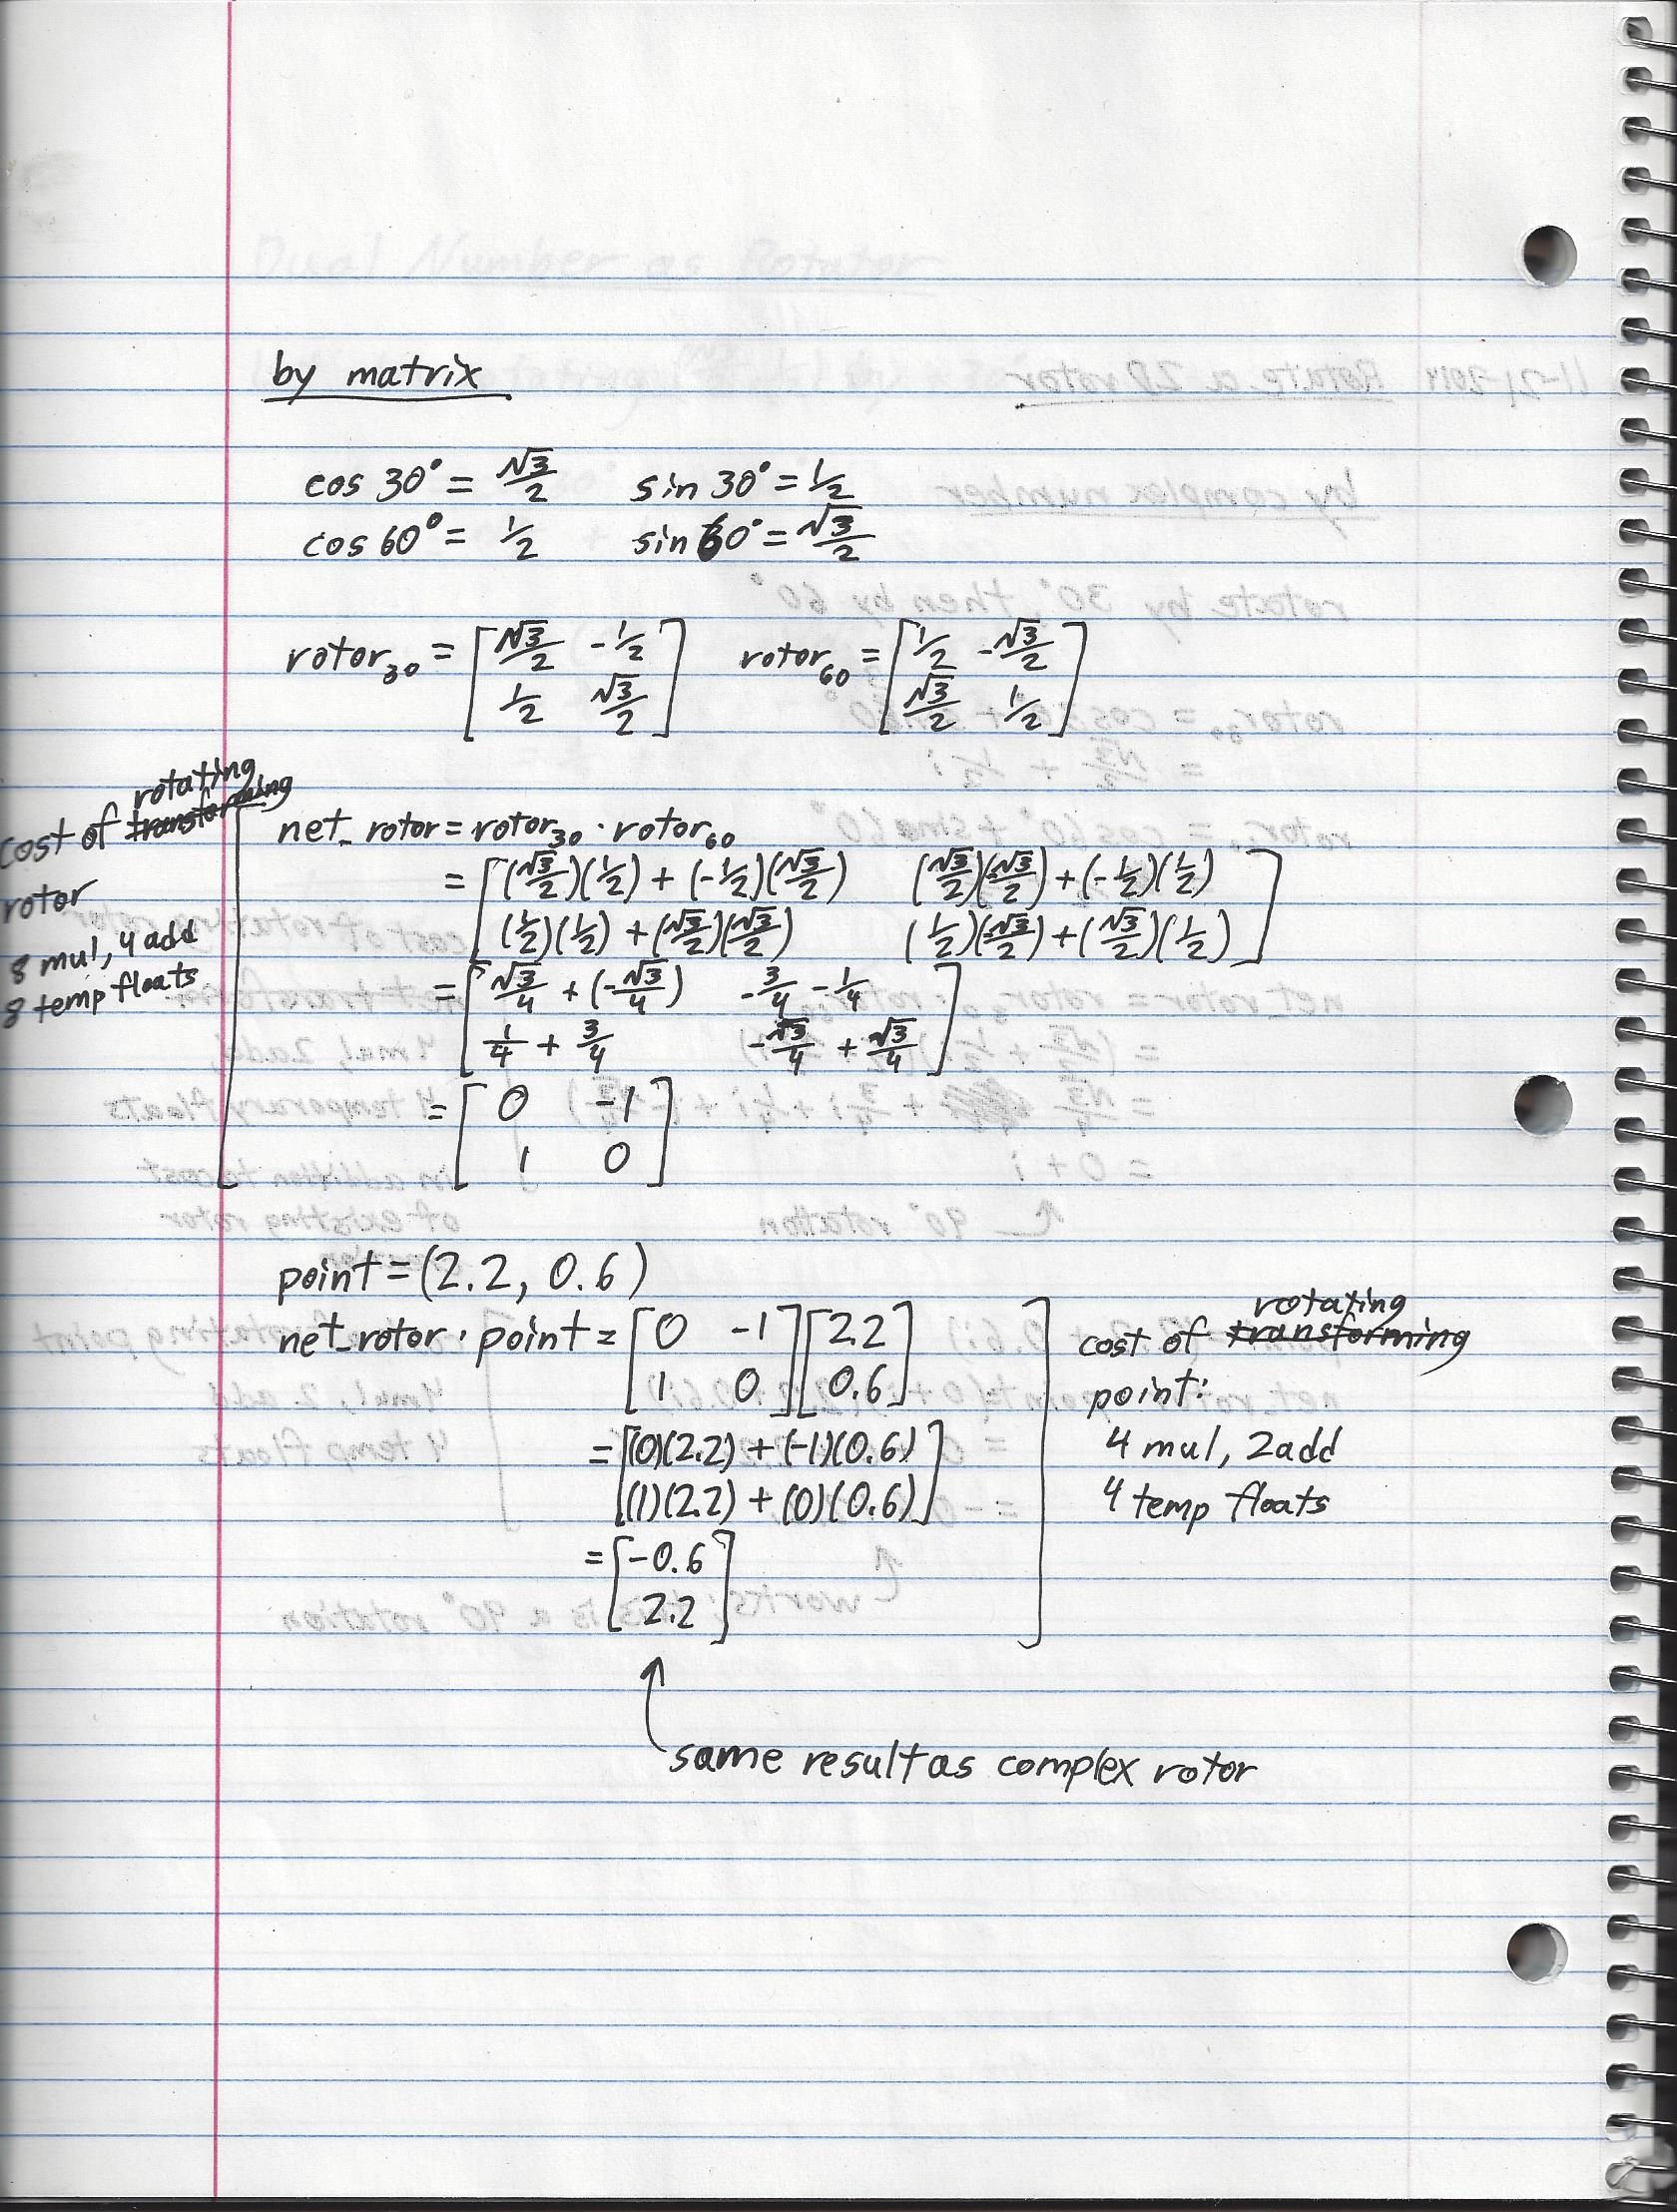 by matrix
cos 30° = √3/2 sin 30° = 1/2
cos 60° = 1/2 sin 60° = √3/2
rotor₃₀ = [√3/2 -1/2 rotor₆₀ = [1/2 -√3/2
1/2 √3/2] √3/2 1/2]
rotating
cost of transforming
rotor
8 mul, 4 add
8 temp floats
net_rotor = rotor₃₀ · rotor₆₀
= [(√3/2)(1/2) + (-1/2)(√3/2) (√3/2)(-√3/2) + (-1/2)(1/2)
(1/2)(1/2) + (√3/2)(√3/2) (1/2)(-√3/2) + (√3/2)(1/2)]
= [√3/4 + (-√3/4) -3/4 - 1/4
1/4 + 3/4 -√3/4 + √3/4]
= [0 -1
1 0]
point = (2.2, 0.6)
net_rotor · point = [0 -1][2.2
1 0][0.6]
= [(0)(2.2) + (-1)(0.6)
(1)(2.2) + (0)(0.6)]
= [-0.6
2.2]
rotating
cost of transforming
point:
4 mul, 2 add
4 temp floats
same result as complex rotor